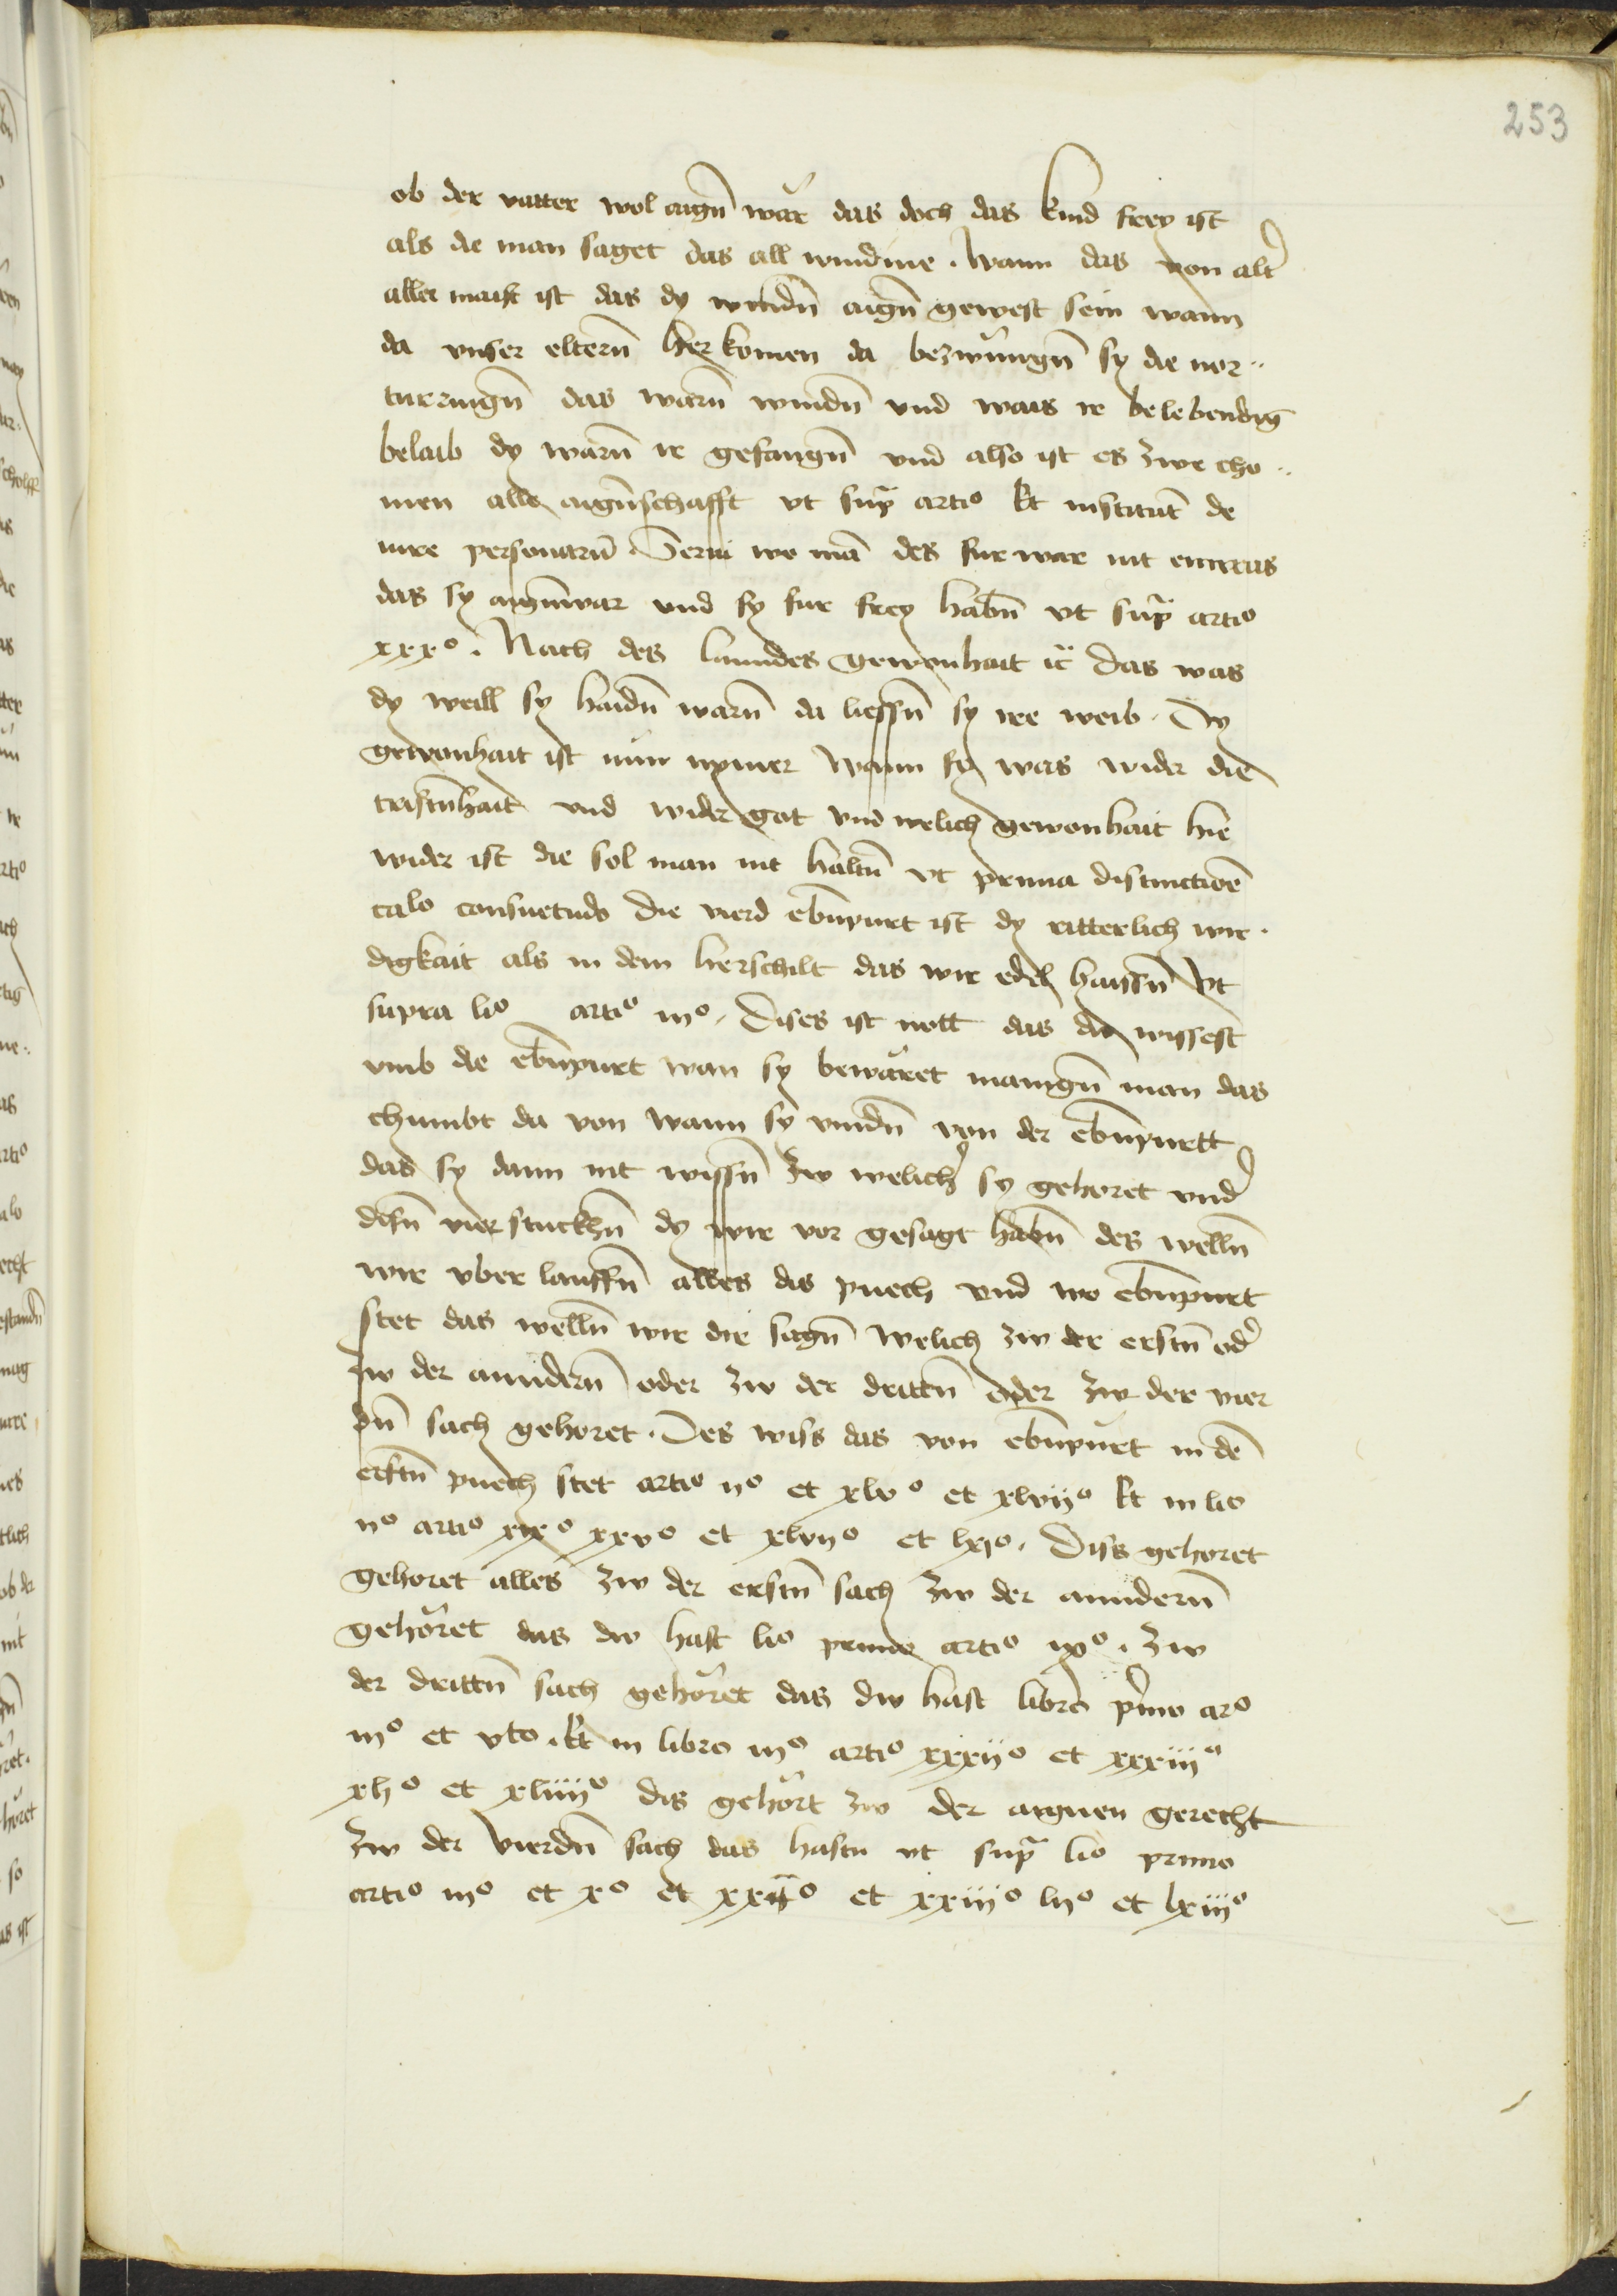 253
ob der vatter wol aign̄ wär das doch das kind frey ist
als die man saget das all windine . Wann das von alt̉
aller maist ist das dy windn̄ aign̄ gewest sein wann
da vnser eltern̄ her komen da bezwungn̄ sy die nor¨
turringn̄ das warn̄ windn̄ vnd wais ir belebendig
belaib dy warn̄ ir gefangn̄ vnd also ist es zwe cho¨
men alle aign̄schafft vt supra artio Et institut̄ de
iure personarū Serui wo mā des fur war nit enwais
das sy aign̄ war vnd sy fur frey habn̄ vt supra artio
xxxo . Nach des lanndes gewonhait ic̄ das was
dy weill sy haidn̄ warn̄ da liessn̄ sy ire weib . Dy
gewonhait ist nun nymer Wann sy was wider die
cristn̄hait vnd wider got vnd welich gewonhait hie
wider ist die sol man nit haltn̄ vt prima distinctiōe
calo consuetudo Die vierd ebn̄purt ist dy ritterlich wir .
digkait als in dem herschilt das wir edel haissn̄ Vt
supra lio artio iiio . Dises ist nott das du wissest
vmb die ebn̄purt wan sy bewäret manign̄ man das
chumbt da von wann sy vindn̄ von der ebn̄purtt
das sy dann nit wissn̄ zw welich̉ sy gehoret vnd̉
disn̄ vier stuckhn̄ dy wir vor gesagt habn̄ des welln̄
wir vber lauffn̄ alles dis puech vnd wo ebn̄purt
stet das welln̄ wir die sagn̄ welich zw der erstn̄ od̉
zw der anndern̄ oder zw der drittn̄ oder zw der vier
dn̄ sach gehoret . Des wiss das von ebn̄purt in dē
erstn̄ puech stet artio iio et xlvo et xlviio Et in lio
iio artio xixo xxvo et xlviio et lxio . Diss gehoret
gehoret alles zw der erstn̄ sach zw der anndern̄
gehöret das dw hast lio primo artio ixo . zw
der drittn̄ sach gehöret das dw hast libro pīmo aro
iiio et vto . Et in libro iiio artio xxxiio et xxxiiio
xlio et xliiiio dis gehört zw der aignen gerecht
zw der Vierdn̄ sach das hastu vt supra lio primo
artio iiio et xo et xxiio et xxiiio liio et lxiiio